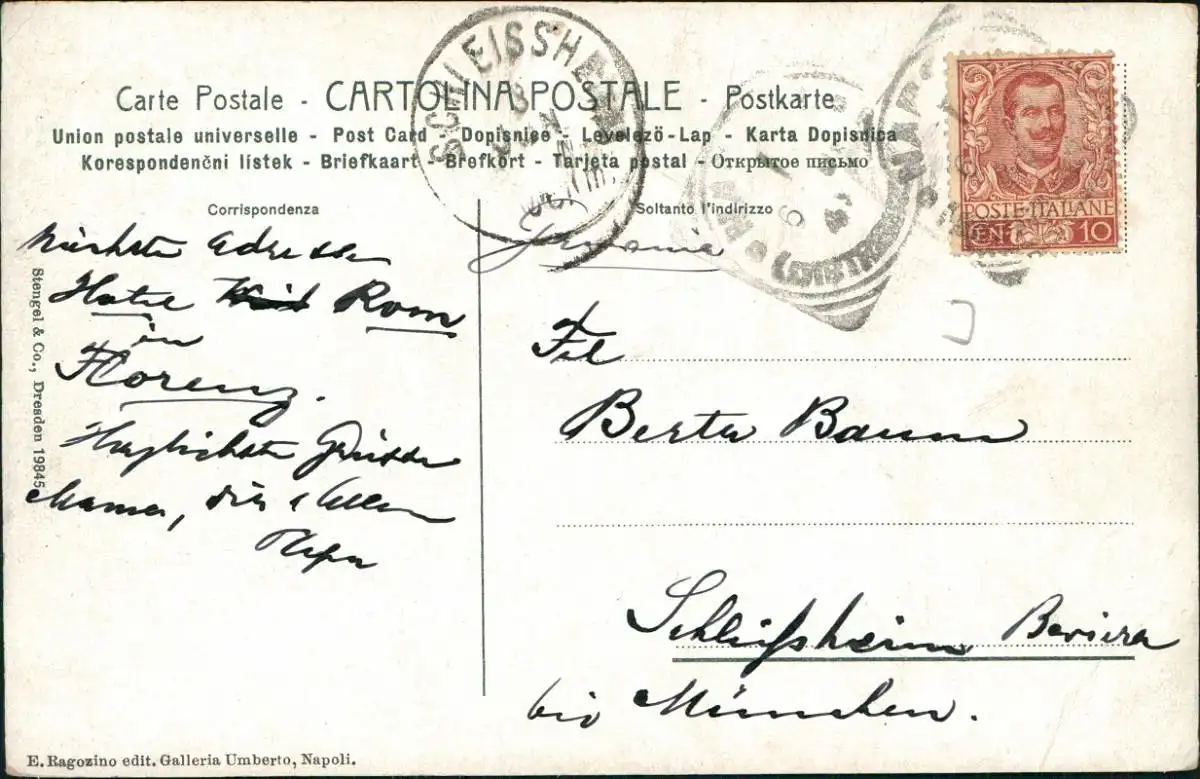 Carte Postale - CARTOLINA POSTALE - Postkarte
Union postale universelle - Post Card - Dopisnice - Levelező-Lap - Karta Dopisnica
Korespondenčni listek - Briefkaart - Brefkort - Tarjeta postal - Открытое письмо
SCHLEISSHEIM
Corrispondenza
Soltanto l'indirizzo
POSTE·ITALIANE
CENT. 10
Nächste Adresse
Hotel Rom
in
Florenz.
Grüsse
Mama, dir & Allen
Papa
Germania
Frl
Berta Baum
Schleißheim Baviera
bei München.
Stengel & Co., Dresden 19845
E. Ragozino edit. Galleria Umberto, Napoli.